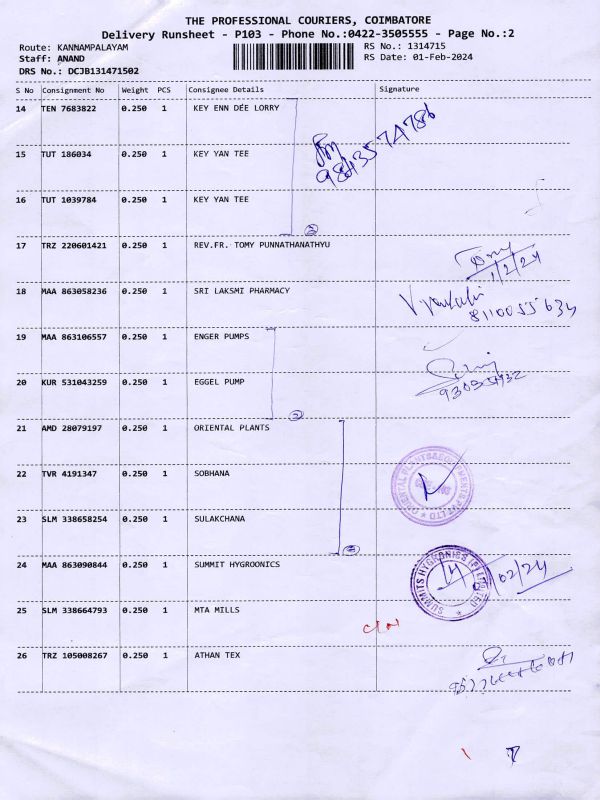 THE PROFESSIONAL COURIERS, COIMBATORE
Delivery Runsheet - P103 - Phone No.:0422-3505555 - Page No.:2
Route: KANNAMPALAYAM RS No.: 1314715
Staff: ANAND RS Date: 01-Feb-2024
DRS No.: DCJB131471502
S No Consignment No Weight PCS Consignee Details Signature
14 TEN 7683822 0.250 1 KEY ENN DEE LORRY
9843574786
15 TUT 186034 0.250 1 KEY YAN TEE
16 TUT 1039784 0.250 1 KEY YAN TEE
17 TRZ 220601421 0.250 1 REV.FR. TOMY PUNNATHANATHYU
1/2/24
18 MAA 863058236 0.250 1 SRI LAKSMI PHARMACY
19 MAA 863106557 0.250 1 ENGER PUMPS
20 KUR 531043259 0.250 1 EGGEL PUMP
21 AMD 28079197 0.250 1 ORIENTAL PLANTS
22 TVR 4191347 0.250 1 SOBHANA
ORIENTAL PLANTS&EQUIPMENTS PVT LTD
23 SLM 338658254 0.250 1 SULAKCHANA
24 MAA 863090844 0.250 1 SUMMIT HYGROONICS
SUMMITS HYGRONICS (P) LIMITED
/02/24
25 SLM 338664793 0.250 1 MTA MILLS
26 TRZ 105008267 0.250 1 ATHAN TEX